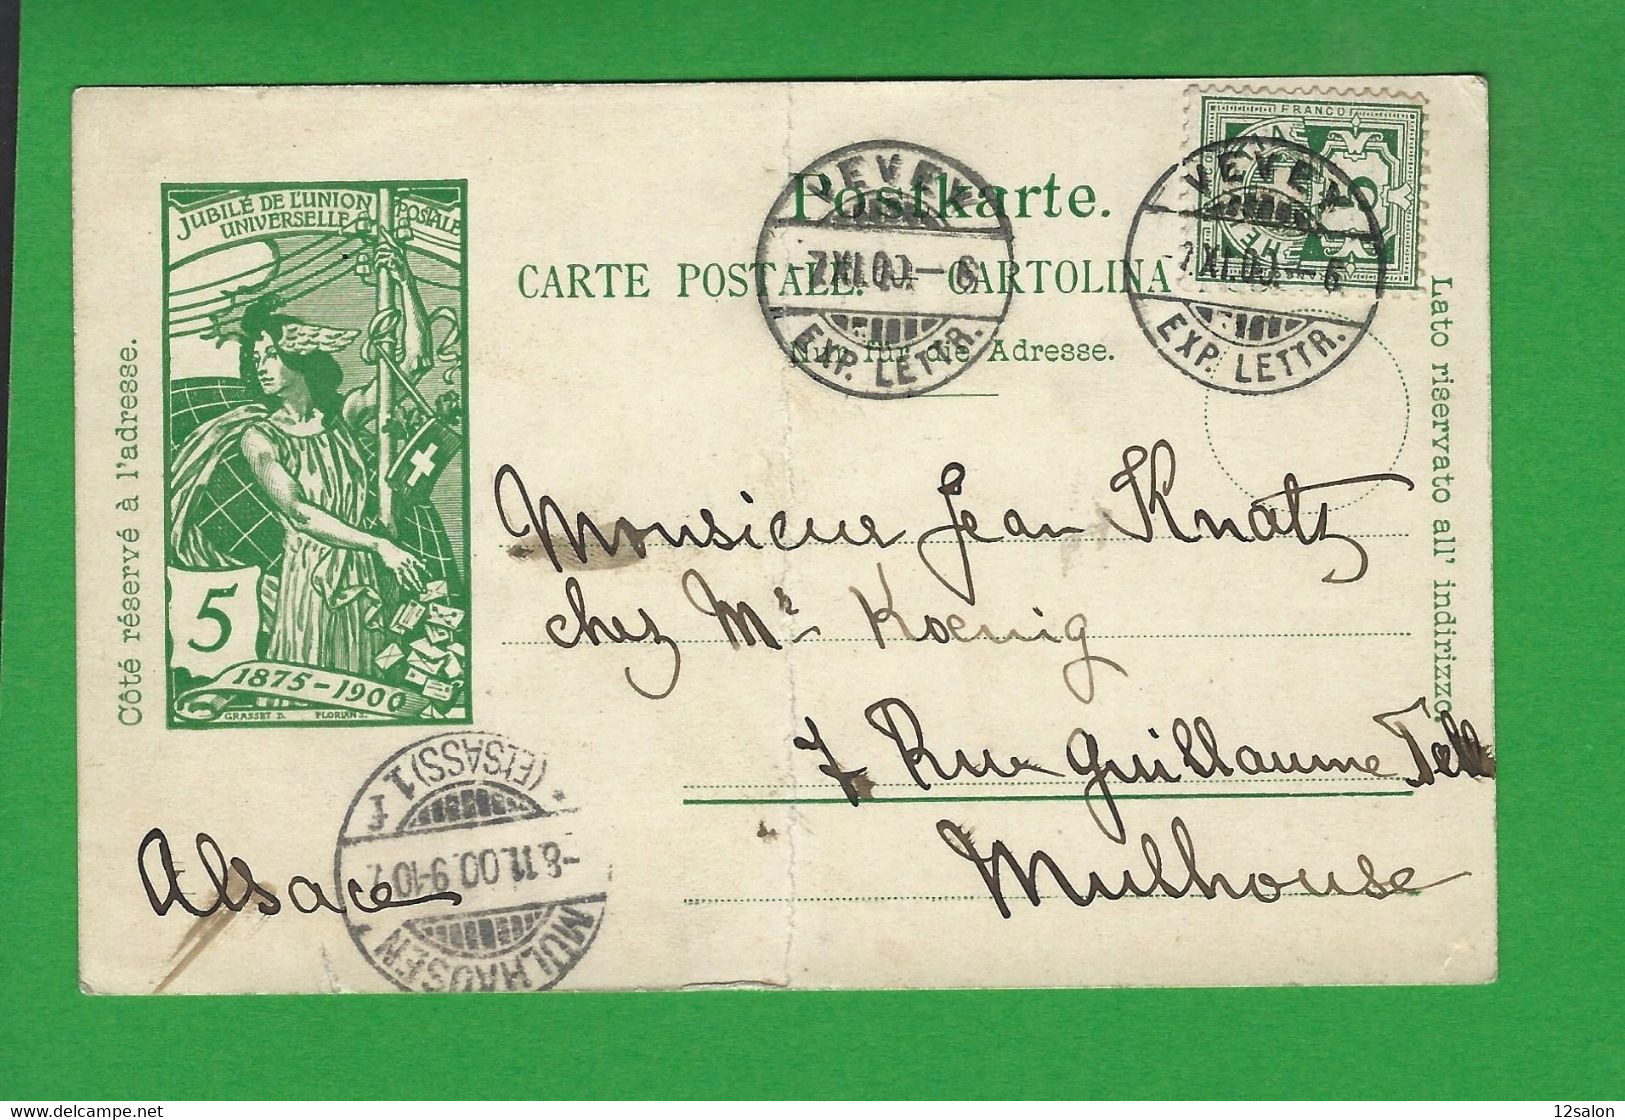 JUBILÉ DE L'UNION
UNIVERSELLE POSTALE
5
1875-1900
GRASSET D. FLORIAN S.
Côté réservé à l'adresse.
Postkarte.
CARTE POSTALE. — CARTOLINA
Nur für die Adresse.
Lato riservato all' indirizzo.
FRANCO
VEVEY
-7.XI.00.-6
EXP. LETTR.
VEVEY
-7.XI.00.-6
EXP. LETTR.
Monsieur Jean Knatz
chez Mr Koenig
7 Rue Guillaume Tell
Mulhouse
Alsace
MÜLHAUSEN
-8.11.00.9-10
(ELSASS) 1 f
12salon